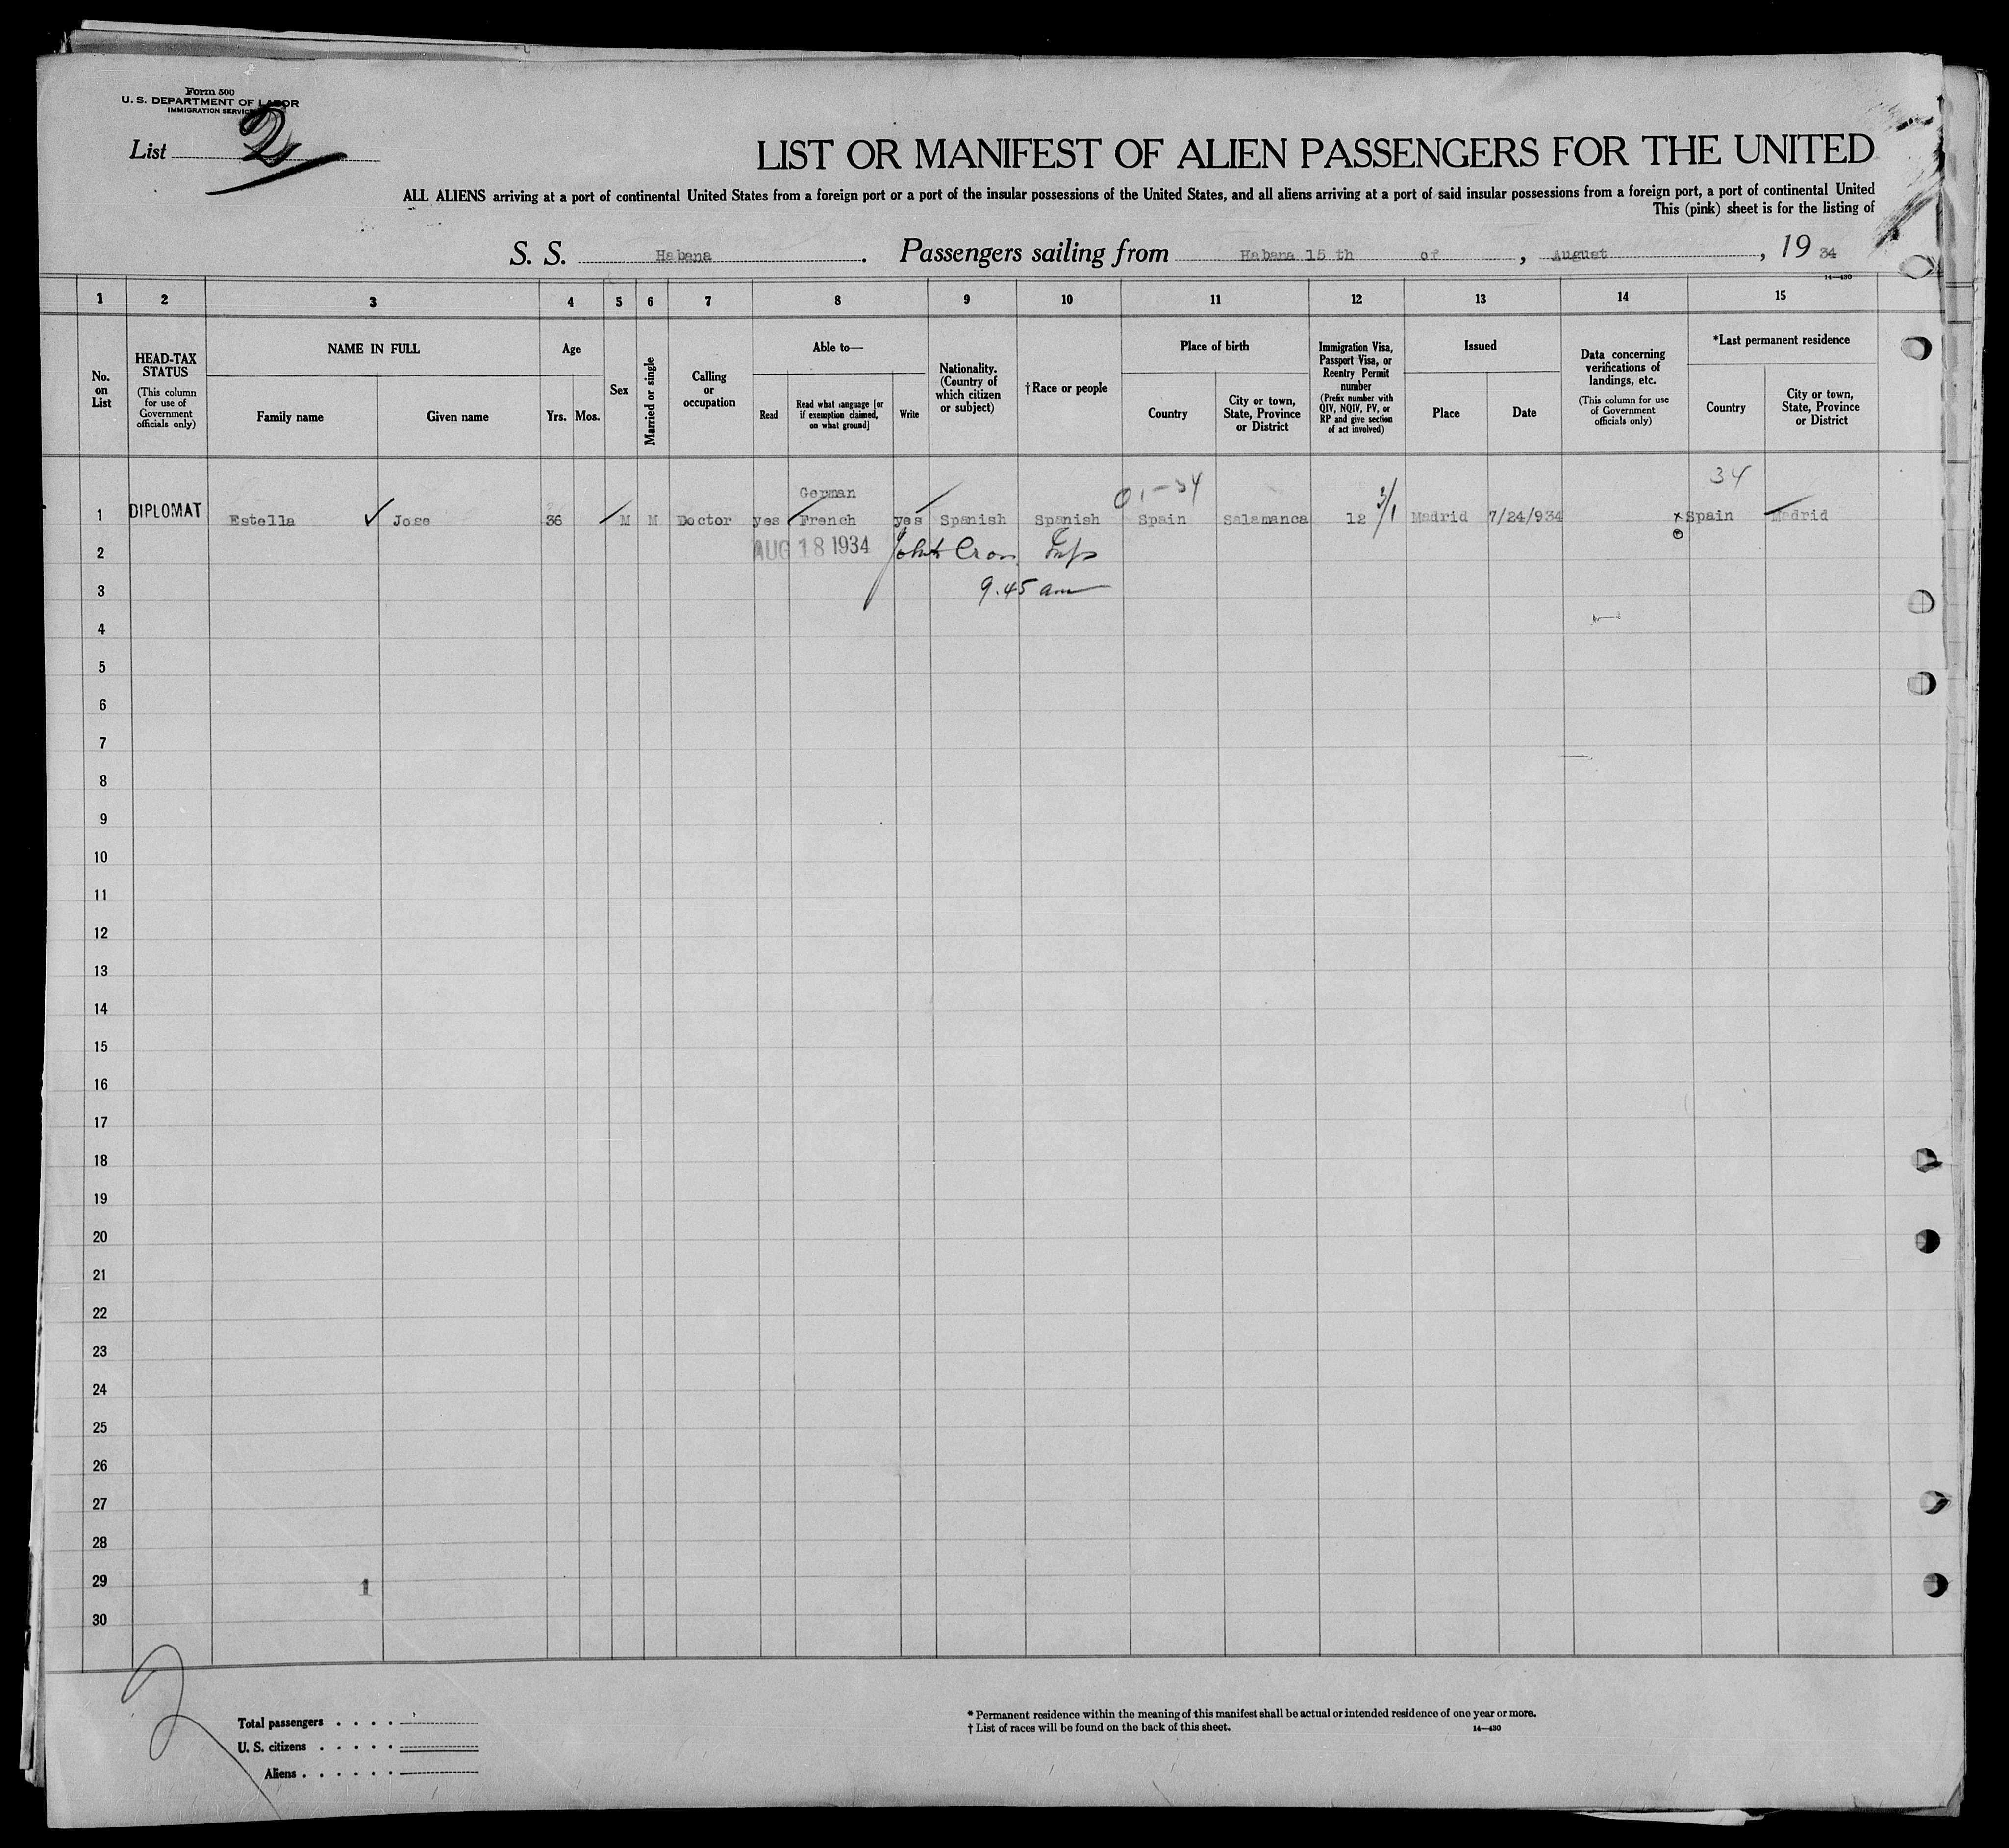 Form 500
U. S. DEPARTMENT OF LABOR
IMMIGRATION SERVICE
List 2
LIST OR MANIFEST OF ALIEN PASSENGERS FOR THE UNITED
ALL ALIENS arriving at a port of continental United States from a foreign port or a port of the insular possessions of the United States, and all aliens arriving at a port of said insular possessions from a foreign port, a port of continental United
This (pink) sheet is for the listing of
S. S. Habana. Passengers sailing from Habana 15 th of, August, 19 34
14—430
1 2 3 4 5 6 7 8 9 10 11 12 13 14 15
No. on List
HEAD-TAX STATUS
(This column for use of Government officials only)
NAME IN FULL
Family name
Given name
Age
Yrs.
Mos.
Sex
Married or single
Calling or occupation
Able to—
Read
Read what language [or if exemption claimed, on what ground]
Write
Nationality. (Country of which citizen or subject)
†Race or people
Place of birth
Country
City or town, State, Province or District
Immigration Visa, Passport Visa, or Reentry Permit number
(Prefix number with QIV, NQIV, PV, or RP and give section of act involved)
Issued
Place
Date
Data concerning verifications of landings, etc.
(This column for use of Government officials only)
*Last permanent residence
Country
City or town, State, Province or District
German 01-34 3/1 34
1 DIPLOMAT Estella Jose 36 M M Doctor yes French yes Spanish Spanish Spain Salamanca 12 Madrid 7/24/934 x Spain Madrid
2 AUG 18 1934 John Cron
3 9.45 am
4
5
6
7
8
9
10
11
12
13
14
15
16
17
18
19
20
21
22
23
24
25
26
27
28
29 1
30
2
Total passengers . . . .
U. S. citizens . . . . .
Aliens . . . . . .
* Permanent residence within the meaning of this manifest shall be actual or intended residence of one year or more.
† List of races will be found on the back of this sheet.
14—430